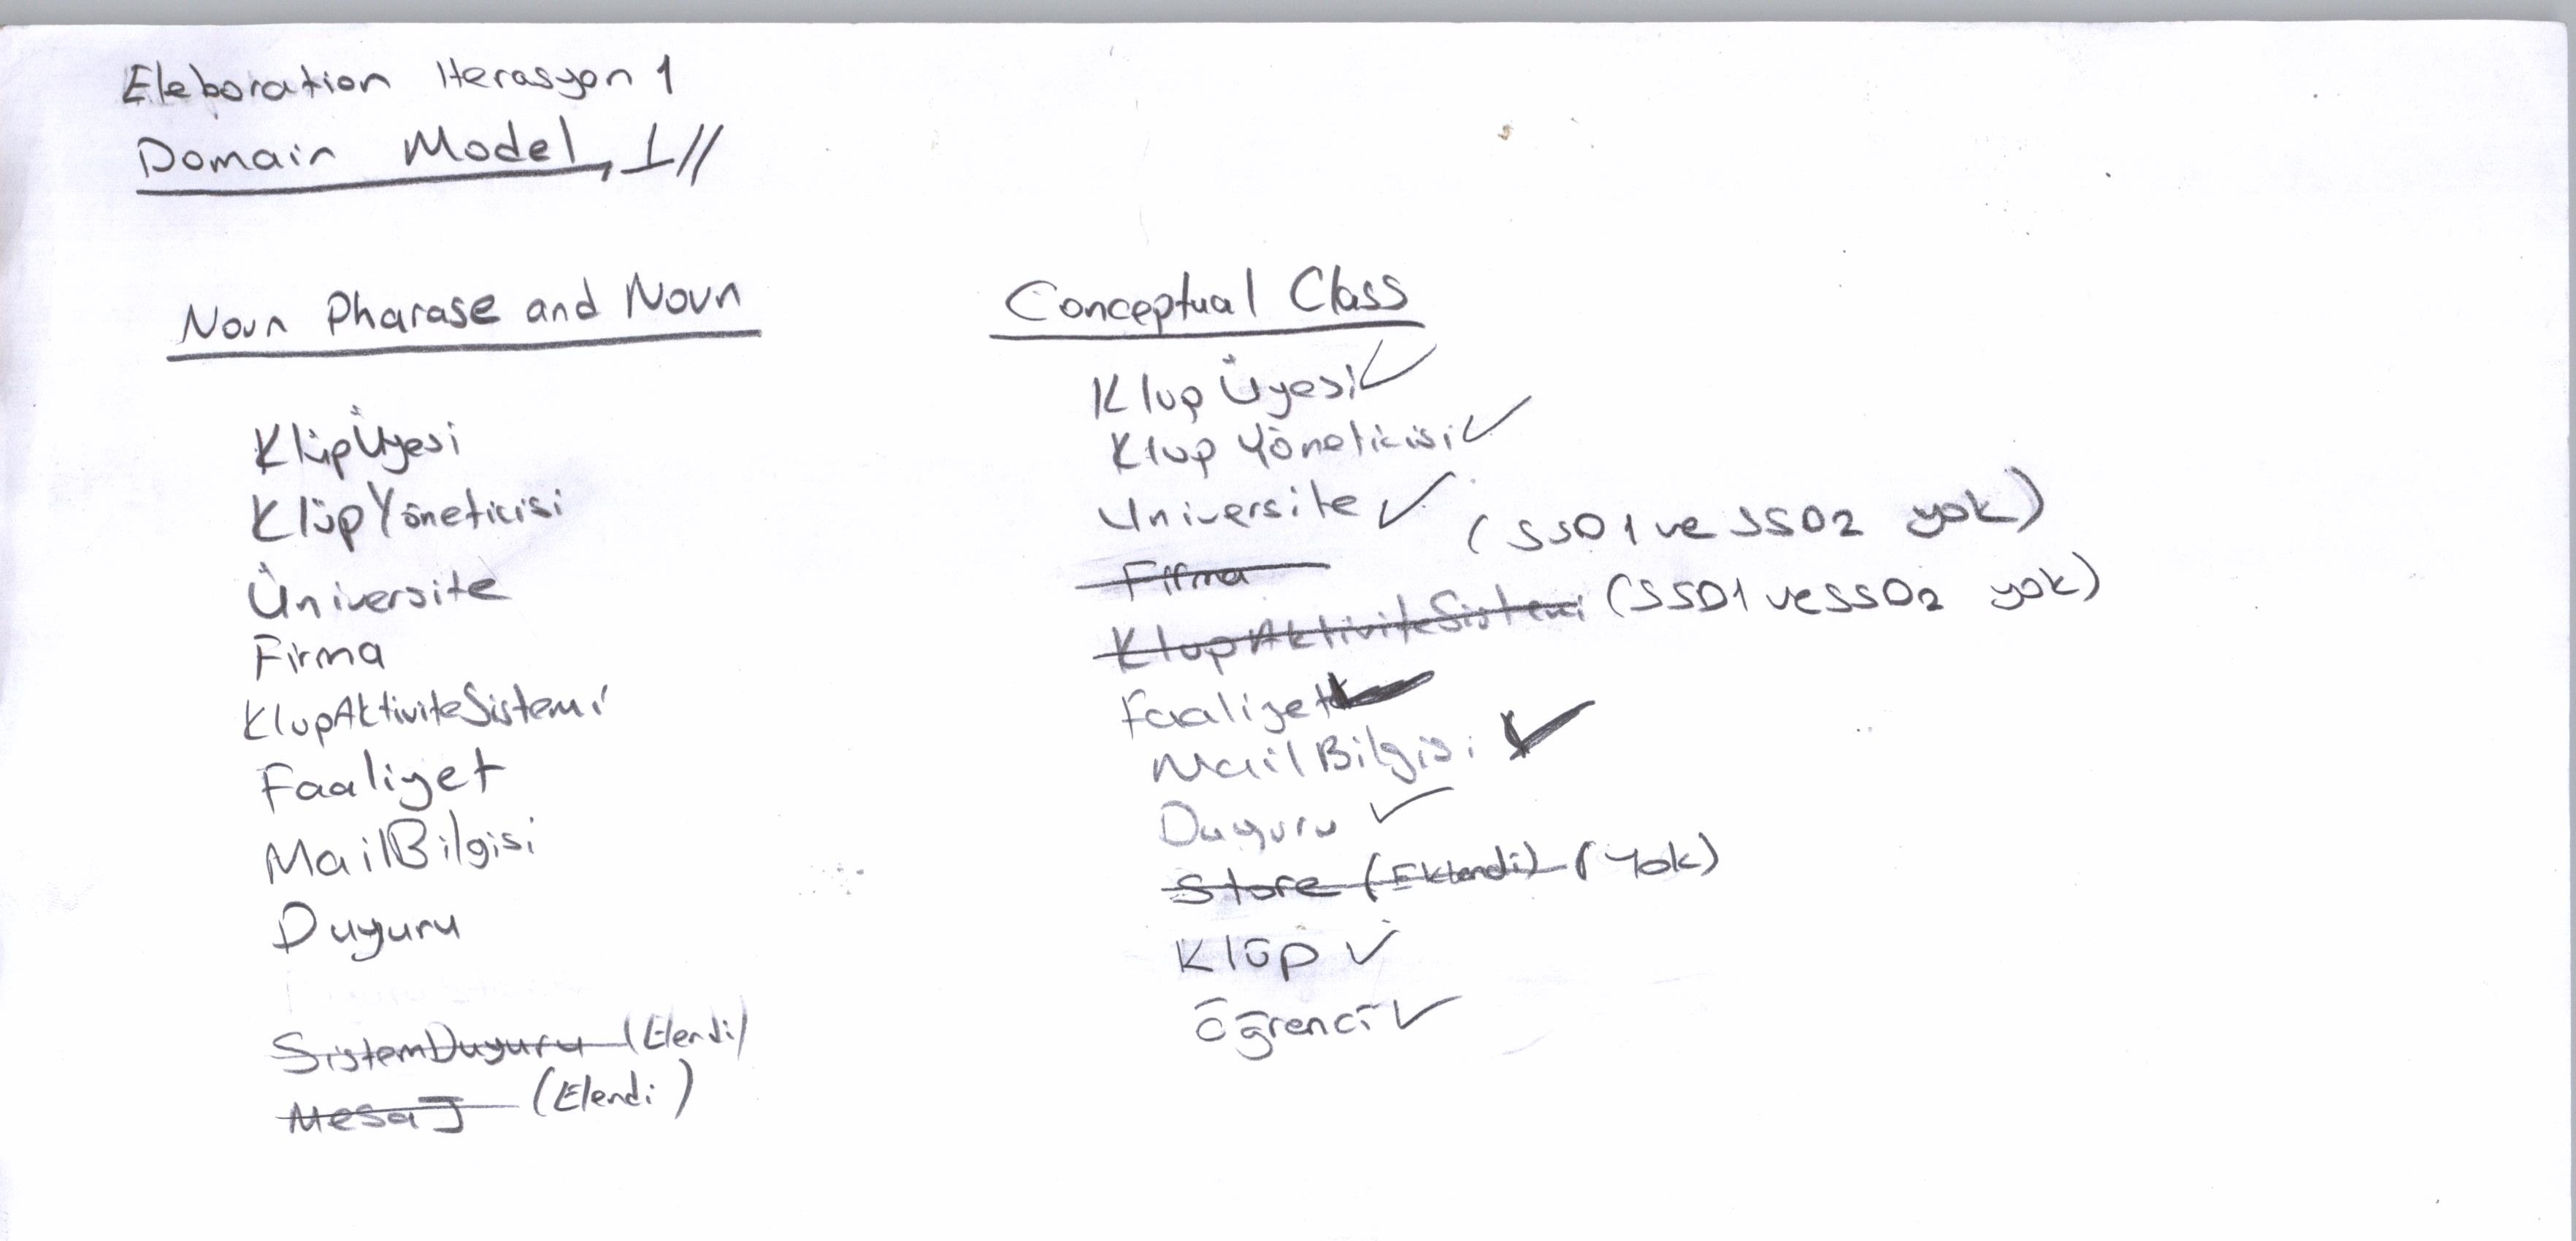 Eleboration Iterasyon 1
Domain Model, 1//
Noun Pharase and Noun
KlüpÜyesi
KlüpYöneticisi
Üniversite
Firma
KlupAktiviteSistemi
Faaliyet
MailBilgisi
Duyuru
SistemDuyuru (Elendi)
Mesaj (Elendi)
Conceptual Class
Klup Üyesi ✓
Klup Yöneticisi ✓
Universite ✓
Firma (SSD1 ve SSD2 yok)
KlupAktiviteSistemi (SSD1 ve SSD2 yok)
Faaliyet ✓
MailBilgisi ✓
Duyuru ✓
Store (Eklendi) (Yok)
Klüp ✓
Öğrenci ✓